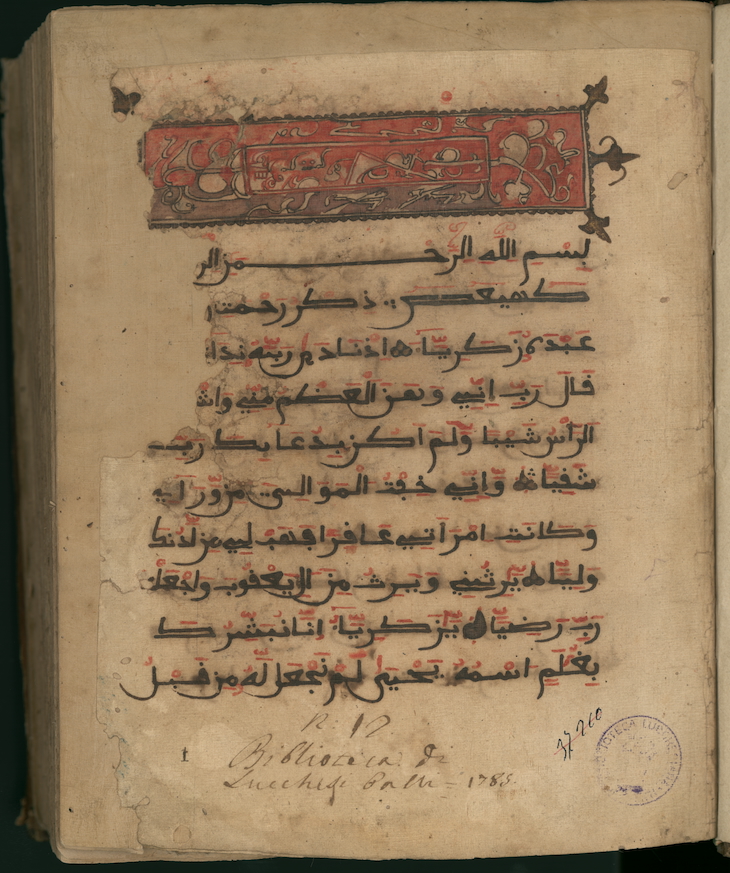 بسم الله الرحمن الر
كهيعص ذكر رحمت
عبده زكريا اذ نادى ربه ندا
قال رب اني وهن العظم مني واش
الراس شيبا ولم اكن بدعايك رب
شقيا واني خفت الموالي من وراي
وكانت امراتي عاقرا فهب لي من لدنك
وليا يرثني ويرث من ال يعقوب واجعله
رب رضيا يزكريا انا نبشرك
بغلم اسمه يحيى لم نجعل له من قبل
37210
1
Biblioteca di
Lucchesi Palli = 1785